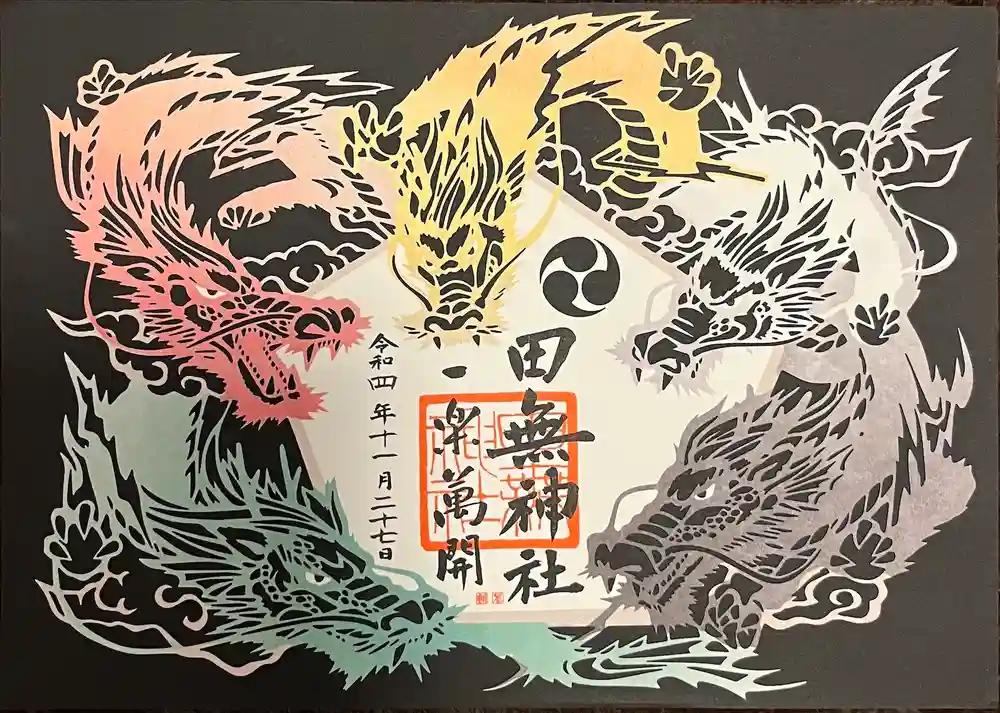 田無神社
一楽萬開
令和四年十一月二十七日